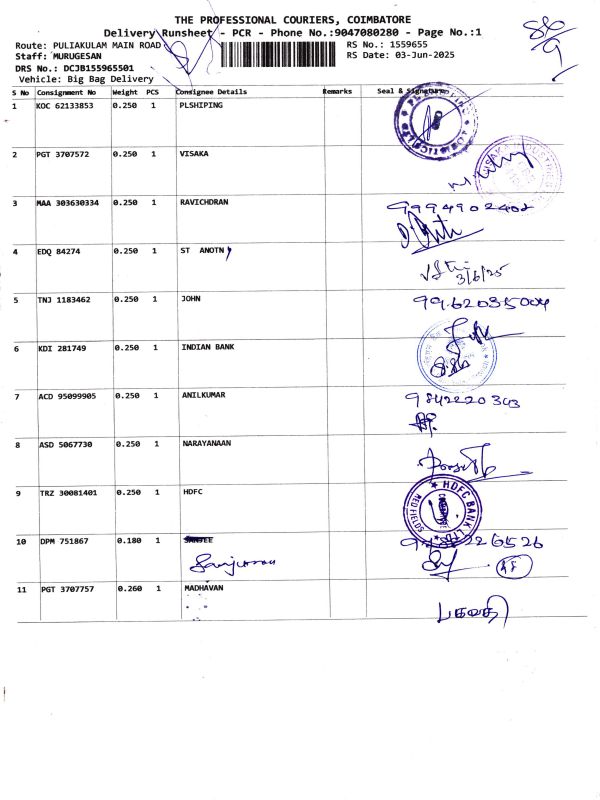 THE PROFESSIONAL COURIERS, COIMBATORE
Delivery Runsheet - PCR - Phone No.:9047080280 - Page No.:1
Route: PULIAKULAM MAIN ROAD
RS No.: 1559655
Staff: MURUGESAN
RS Date: 03-Jun-2025
DRS No.: DCJB155965501
Vehicle: Big Bag Delivery
S No Consignment No Weight PCS Consignee Details Remarks Seal & Signature
1 KOC 62133853 0.250 1 PLSHIPING
2 PGT 3707572 0.250 1 VISAKA
3 MAA 303630334 0.250 1 RAVICHDRAN 9994902408
4 EDQ 84274 0.250 1 ST ANOTN
3/6/25
5 TNJ 1183462 0.250 1 JOHN 9962035004
6 KDI 281749 0.250 1 INDIAN BANK
7 ACD 95099905 0.250 1 ANILKUMAR 9842220343
8 ASD 5067730 0.250 1 NARAYANAAN
9 TRZ 30081401 0.250 1 HDFC
HDFC BANK
RED FIELDS
10 DPM 751867 0.180 1 SANJEE
11 PGT 3707757 0.260 1 MADHAVAN